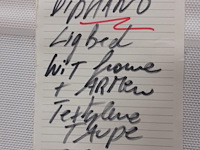 DIPHANO
Ligbed
Wit frame
+ ARMEN
Textylene
TAUPE